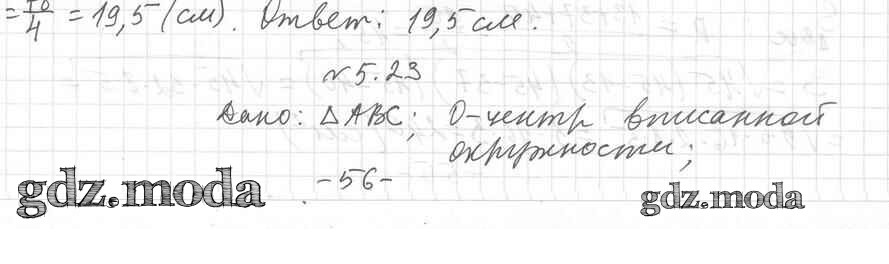 = 78/4 = 19,5 (см). Ответ: 19,5 см.
№ 5.23
Дано: △ABC; O-центр вписанной
окружности;
-56-
gdz.moda gdz.moda